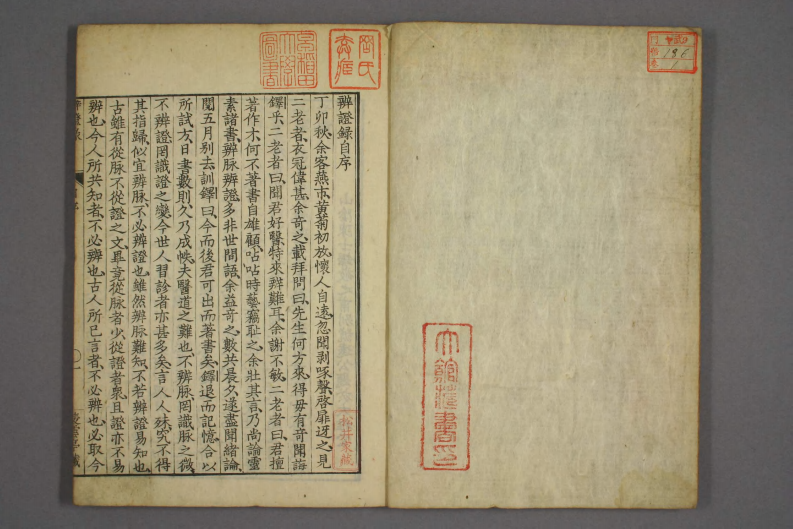 辨證錄自序
丁卯秋余客燕市黃菊初放懷人自遠忽聞剥啄聲啓扉迓之見
二老者衣冠偉甚余奇之載拜問曰先生何方來得毋有奇聞誨
鐸乎二老者曰聞君好醫特來辨難耳余謝不敏二老者曰君擅
著作才何不著書自雄顧呫呫時藝竊恥之余壯其言乃尚論靈
素諸書辨脉辨證多非世間語余益奇之數共晨夕遂盡聞緒論
閱五月別去訓鐸曰今而後君可出而著書矣鐸退而記憶合以
所試方日書數則久乃成帙夫醫道之難也不辨脉罔識脉之微
不辨證罔識證之變今世人習診者亦甚多矣言人人殊究不得
其指歸似宜辨脉不必辨證也雖然辨脉難知不若辨證易知也
古雖有從脉不從證之文畢竟從脉者少從證者衆且證亦不易
辨也今人所共知者不必辨也古人所已言者不必辨也必取今
早稻田大學圖書
松井家藏
186